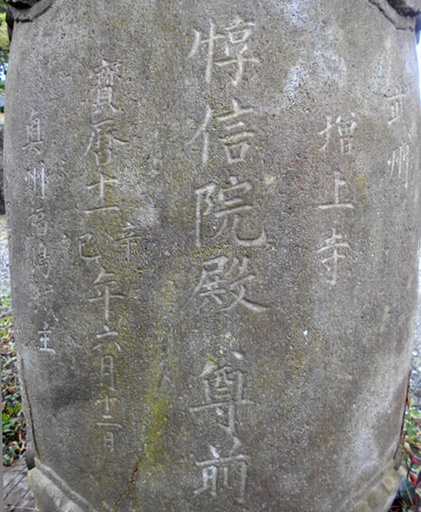 武州
増上寺
惇信院殿尊前
寶暦十一辛巳年六月十二日
奥州福嶋城主